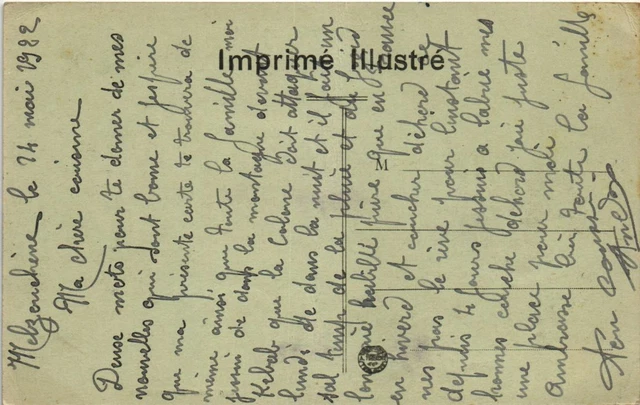 Imprimé Illustré
M
le 24 mai 1922
Ma chère cousine
Deuse mots pour te doner de mes
nouvelles qui sont bonne et jespaire
que ma présente carte te trouvera de
même ainsi que toute la famille moi
je suis de dans la montagne devant
que la Colone doit attaquer
lundi de dans la nuit et il fait un
sal temp de la pluie et du froid
on est habillé pire que en France
en hiverd et coucher dehord ce
nes pas le rève pour linstant
depuis 4 jours je suis a labrie mes
homes couche dehord jai juste
une place pour moi
Ambrasse bin toute la famille
Ton cousin